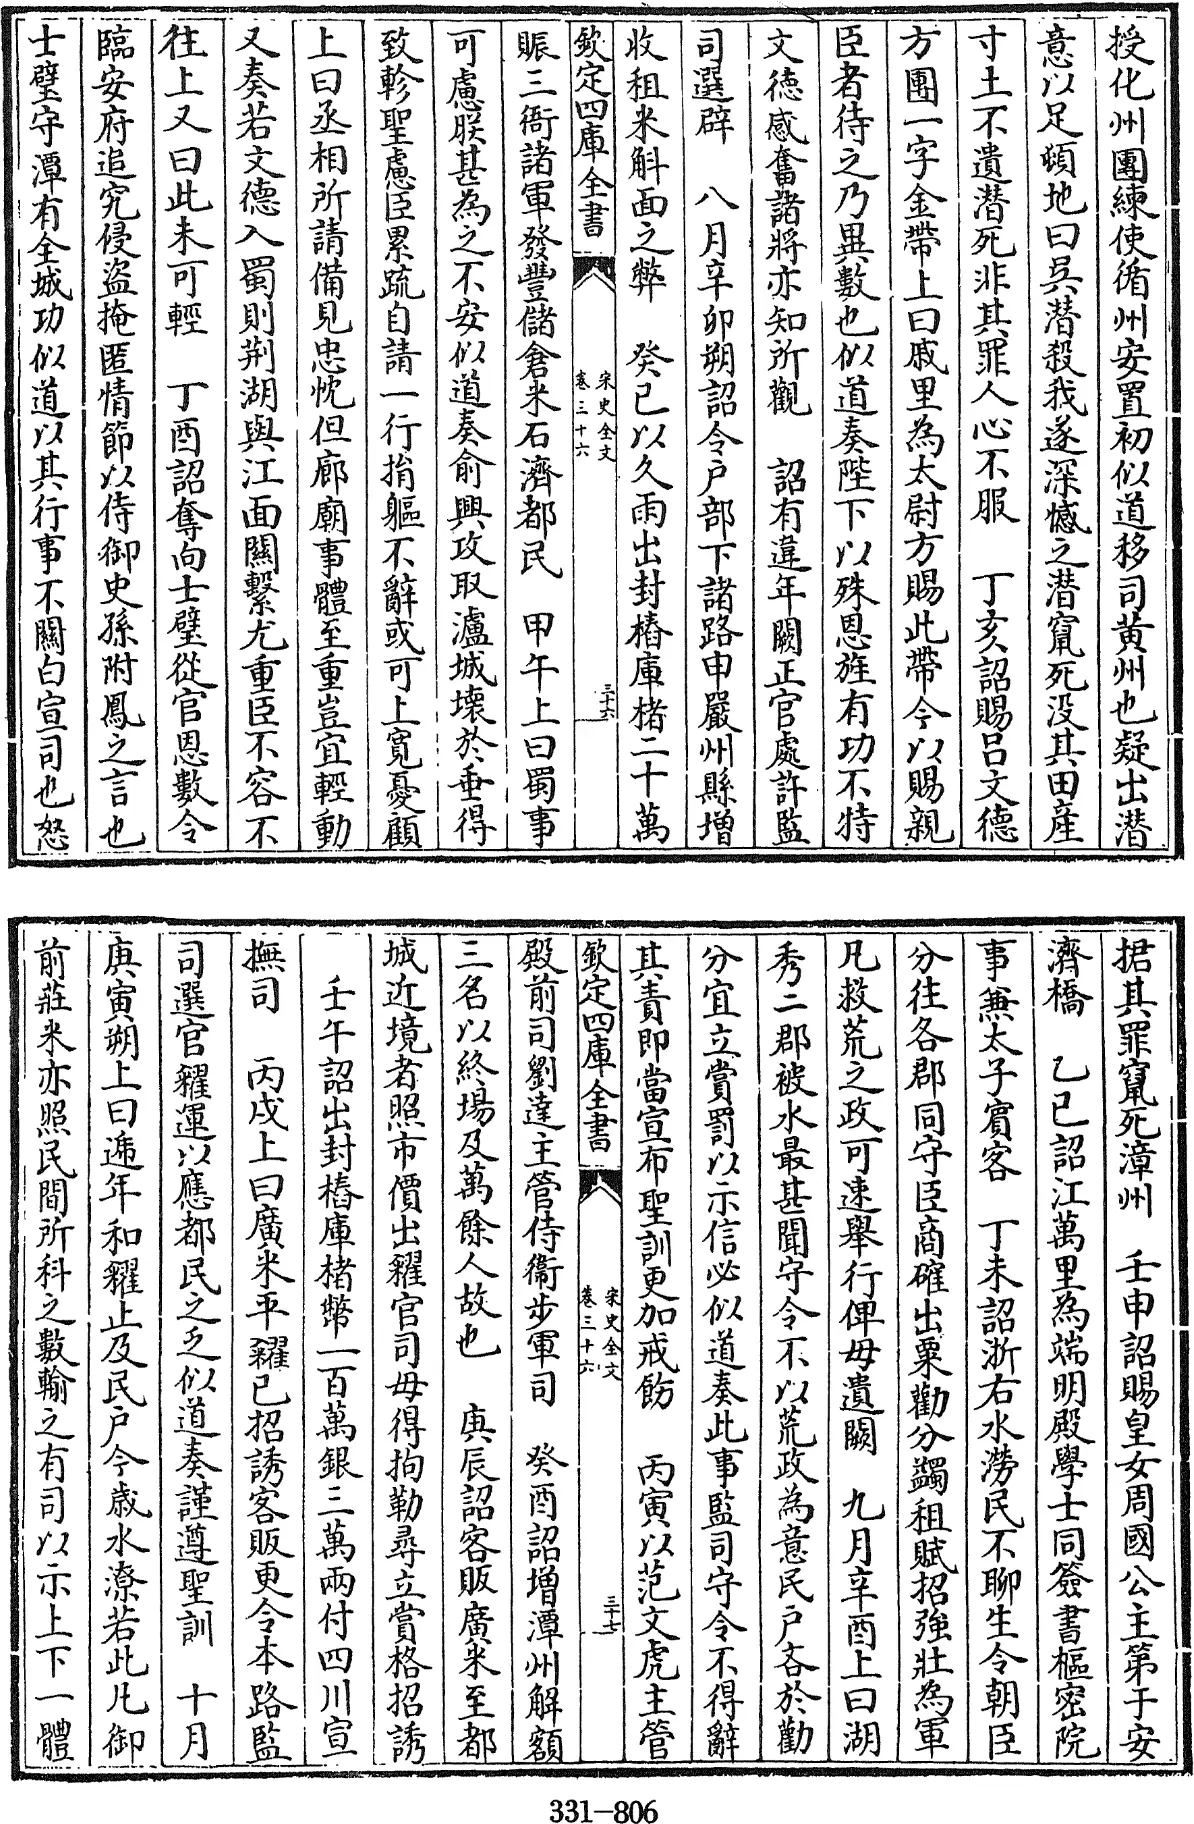 授化州團練使循州安置初似道移司黄州也疑出潛
意以足頓地曰吳潛殺我遂深憾之潛竄死没其田産
寸土不遺潛死非其罪人心不服　丁亥詔賜吕文德
方團一字金帶上曰戚里為太尉方賜此帶今以賜親
臣者待之乃異數也似道奏陛下以殊恩旌有功不特
文德感奮諸將亦知所觀　詔有違年闕正官處許監
司選辟　八月辛卯朔詔令户部下諸路申嚴州縣增
收租米斛面之弊　癸巳以久雨出封樁庫楮二十萬
欽定四庫全書
宋史全文
卷三十六
三十六
賑三衙諸軍發豐儲倉米石濟都民　甲午上曰蜀事
可慮朕甚為之不安似道奏俞興攻取瀘城壞於垂得
致軫聖慮臣累疏自請一行捐軀不辭或可上寛憂顧
上曰丞相所請備見忠忱但廊廟事體至重豈宜輕動
又奏若文德入蜀則荆湖與江面關繫尤重臣不容不
往上又曰此未可輕　丁酉詔奪向士璧從官恩數令
臨安府追究侵盜掩匿情節以侍御史孫附鳳之言也
士璧守潭有全城功似道以其行事不關白宣司也怒
据其罪竄死漳州　壬申詔賜皇女周國公主第于安
濟橋　乙巳詔江萬里為端明殿學士同簽書樞密院
事兼太子賓客　丁未詔浙右水澇民不聊生令朝臣
分往各郡同守臣商確出粟勸分蠲租賦招強壯為軍
凡救荒之政可速舉行俾毋遺闕　九月辛酉上曰湖
秀二郡被水最甚聞守令不以荒政為意民户吝於勸
分宜立賞罰以示信必似道奏此事監司守令不得辭
其責即當宣布聖訓更加戒飭　丙寅以范文虎主管
欽定四庫全書
宋史全文
卷三十六
三十七
殿前司劉達主管侍衞步軍司　癸酉詔增潭州解額
三名以終場及萬餘人故也　庚辰詔客販廣米至都
城近境者照市價出糶官司毋得拘勒尋立賞格招誘
壬午詔出封樁庫楮幣一百萬銀三萬兩付四川宣
撫司　丙戌上曰廣米平糴已招誘客販更令本路監
司選官糴運以應都民之乏似道奏謹遵聖訓　十月
庚寅朔上曰逓年和糴止及民户今歳水潦若此凡御
前莊米亦照民間所科之數輸之有司以示上下一體
331-806